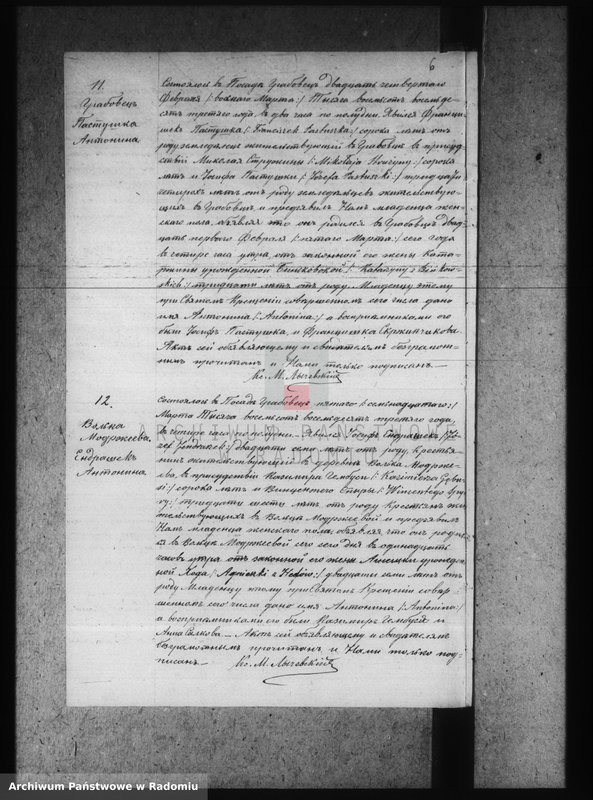 6
11.
Грабовецъ
Пастушка
Антонина
Состоялось въ Посадѣ Грабовецъ двадцать четвертаго
Февраля /: восьмаго Марта :/ Тысяча восемьсотъ восемьде-
сятъ третяго года, въ два часа по полудни. Явился Франци-
шекъ Пастушка /: Franciszek Pastuszka :/ сорока лѣтъ отъ
роду земледѣлецъ жительствующій въ Грабовцѣ въ присут-
ствіи Миколая
лѣтъ и Іосифа Пастушки /: Józefa Pastuszki :/ тридцати
четырехъ лѣтъ отъ роду земледѣльцевъ жительствую-
щихъ въ Грабовцѣ и предъявилъ Намъ младенца жен-
скаго пола, объявляя что онъ родился въ Грабовцѣ двад-
цать перваго Февраля /: пятаго Марта :/ сего года
въ четыре часа утра, отъ законной его жены Ката-
ржины урожденной
тридцати лѣтъ отъ роду. Младенцу этому
при Святомъ Крещеніи совершенномъ сего числа дано
имя Антонина /: Antonina :/ а воспріемниками его
были Іосифъ Пастушка, и Францишка
Актъ сей объявляющему и свидѣтелямъ безграмот-
нымъ прочитанъ и Нами только подписанъ. —
Кс. М. Лычевскій
12.
Волька
Моджеева.
Ендрашекъ
Антонина.
Состоялось въ Посадѣ Грабовецъ пятаго /: семнадцатаго :/
Марта Тысяча восемьсотъ восемьдесятъ третяго года,
въ четыре часа по полудни. Явился Іосифъ Ендрашекъ /: Jó-
zef Jendraszek :/ двадцати семи лѣтъ отъ роду, крестья-
нинъ жительствующій въ деревнѣ Волька Моджее-
ва, въ присутствіи Казимира Гембуси /: Kazimierza Gębu-
si :/ сорока лѣтъ и Винцентого
тридцати шести лѣтъ отъ роду крестьянъ жи-
тельствующихъ въ Вольцѣ Моджеевой и предъявилъ
Намъ младенца женскаго пола, объявляя что онъ родил-
ся въ Вольцѣ Моджеевой сего дня въ одинадцать
часовъ утра отъ законной его жены Агнешки урожден-
ной двадцати семи лѣтъ отъ
роду. Младенцу этому при Святомъ Крещеніи совер-
шенномъ сего числа дано имя Антонина /: Antonina :/
а воспріемниками его были Казимиръ Гембуся и
Анна — Актъ сей объявляющему и свидѣтелямъ
безграмотнымъ прочитанъ и Нами только под-
писанъ. — Кс. М. Лычевскій
ARCHIWUM PAŃSTWOWE
W RADOMIU
Archiwum Państwowe w Radomiu